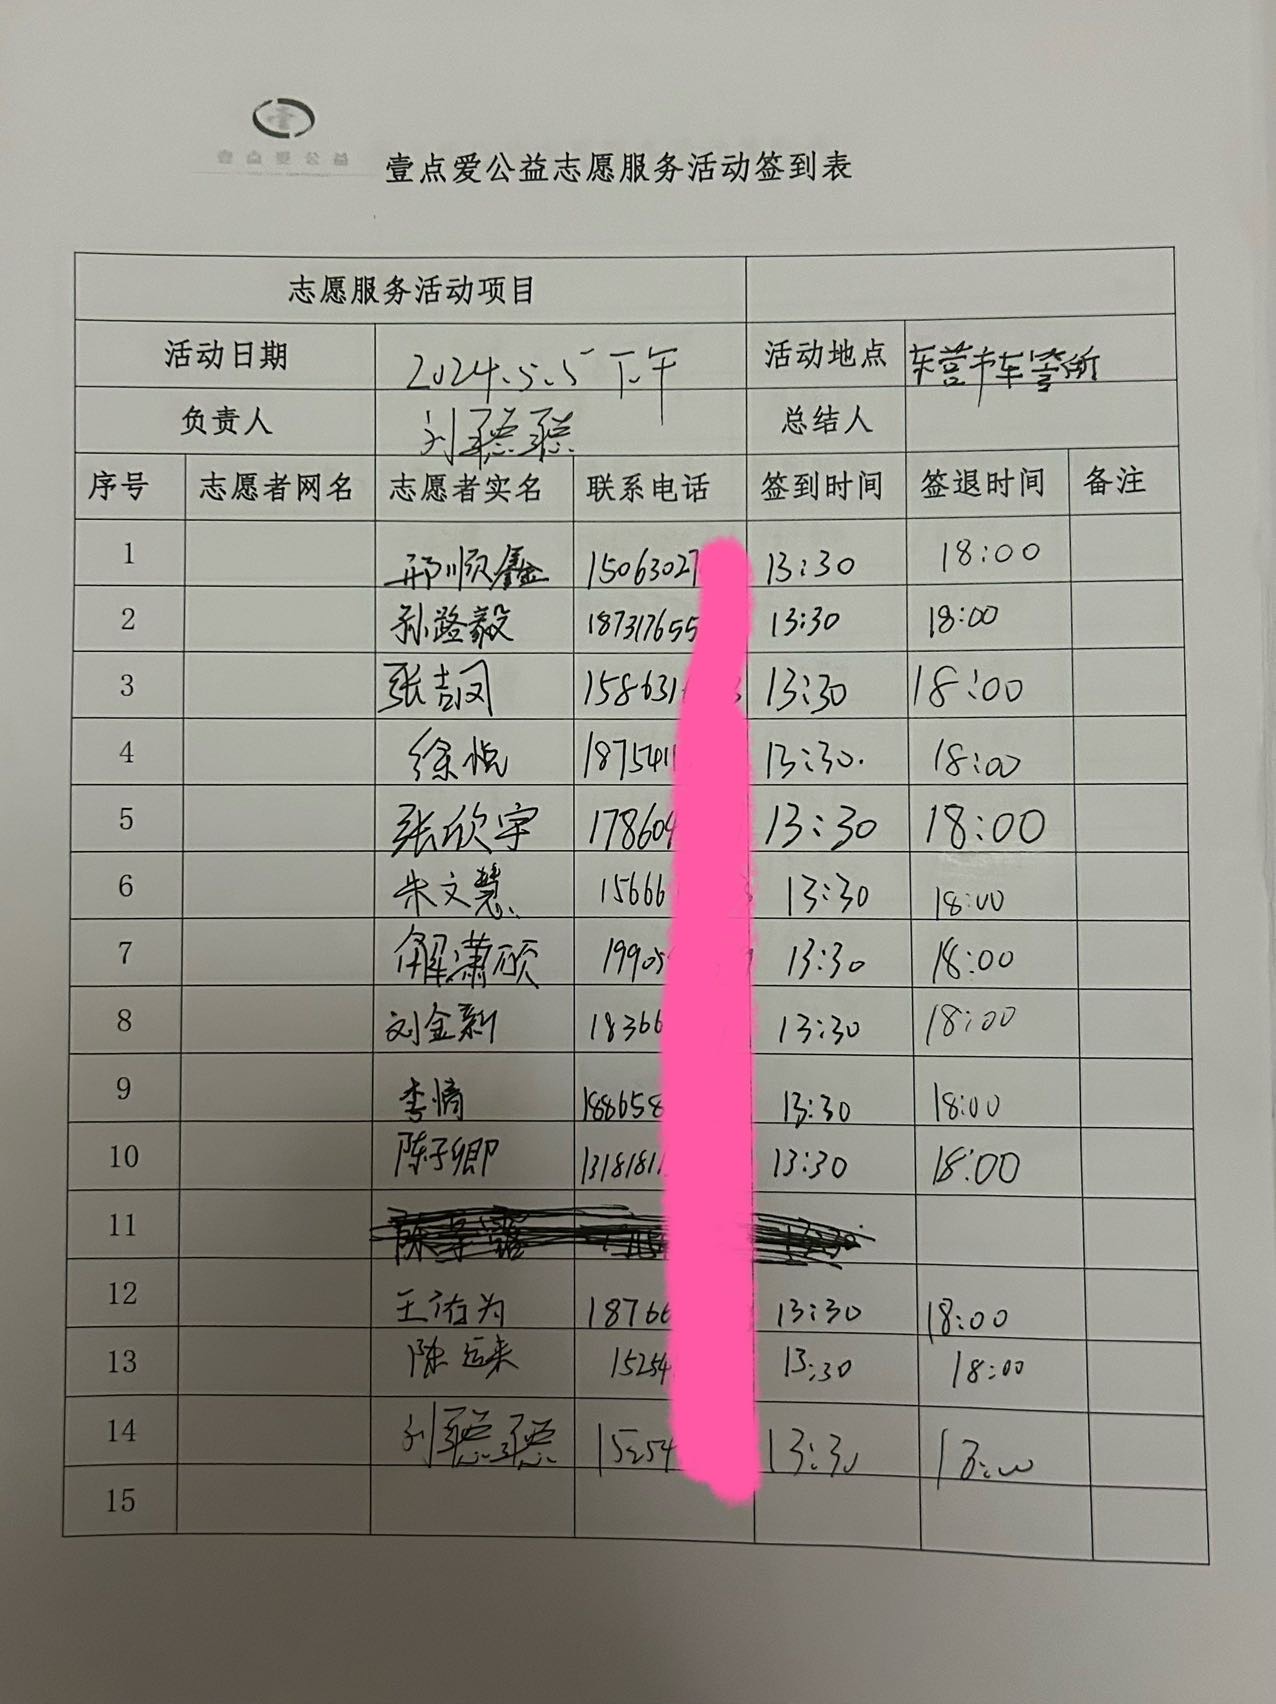 壹点爱公益
壹点爱公益志愿服务活动签到表
志愿服务活动项目
活动日期 2024.5.5 下午 活动地点 东营市车管所
负责人 刘聪聪 总结人
序号 志愿者网名 志愿者实名 联系电话 签到时间 签退时间 备注
1 邢顺鑫 15063027 13:30 18:00
2 孙路毅 187317655 13:30 18:00
3 张吉凤 158631 13:30 18:00
4 徐悦 1875411 13:30. 18:00
5 张欣宇 178604 13:30 18:00
6 朱文慧 15666 13:30 18:00
7 解潇硕 19905 13:30 18:00
8 刘金新 18366 13:30 18:00
9 李倩 188658 13:30 18:00
10 陈子卿 1318181 13:30 18:00
11
12 王佑为 18766 13:30 18:00
13 陈运来 15254 13:30 18:00
14 刘聪聪 15254 13:30 18:00
15